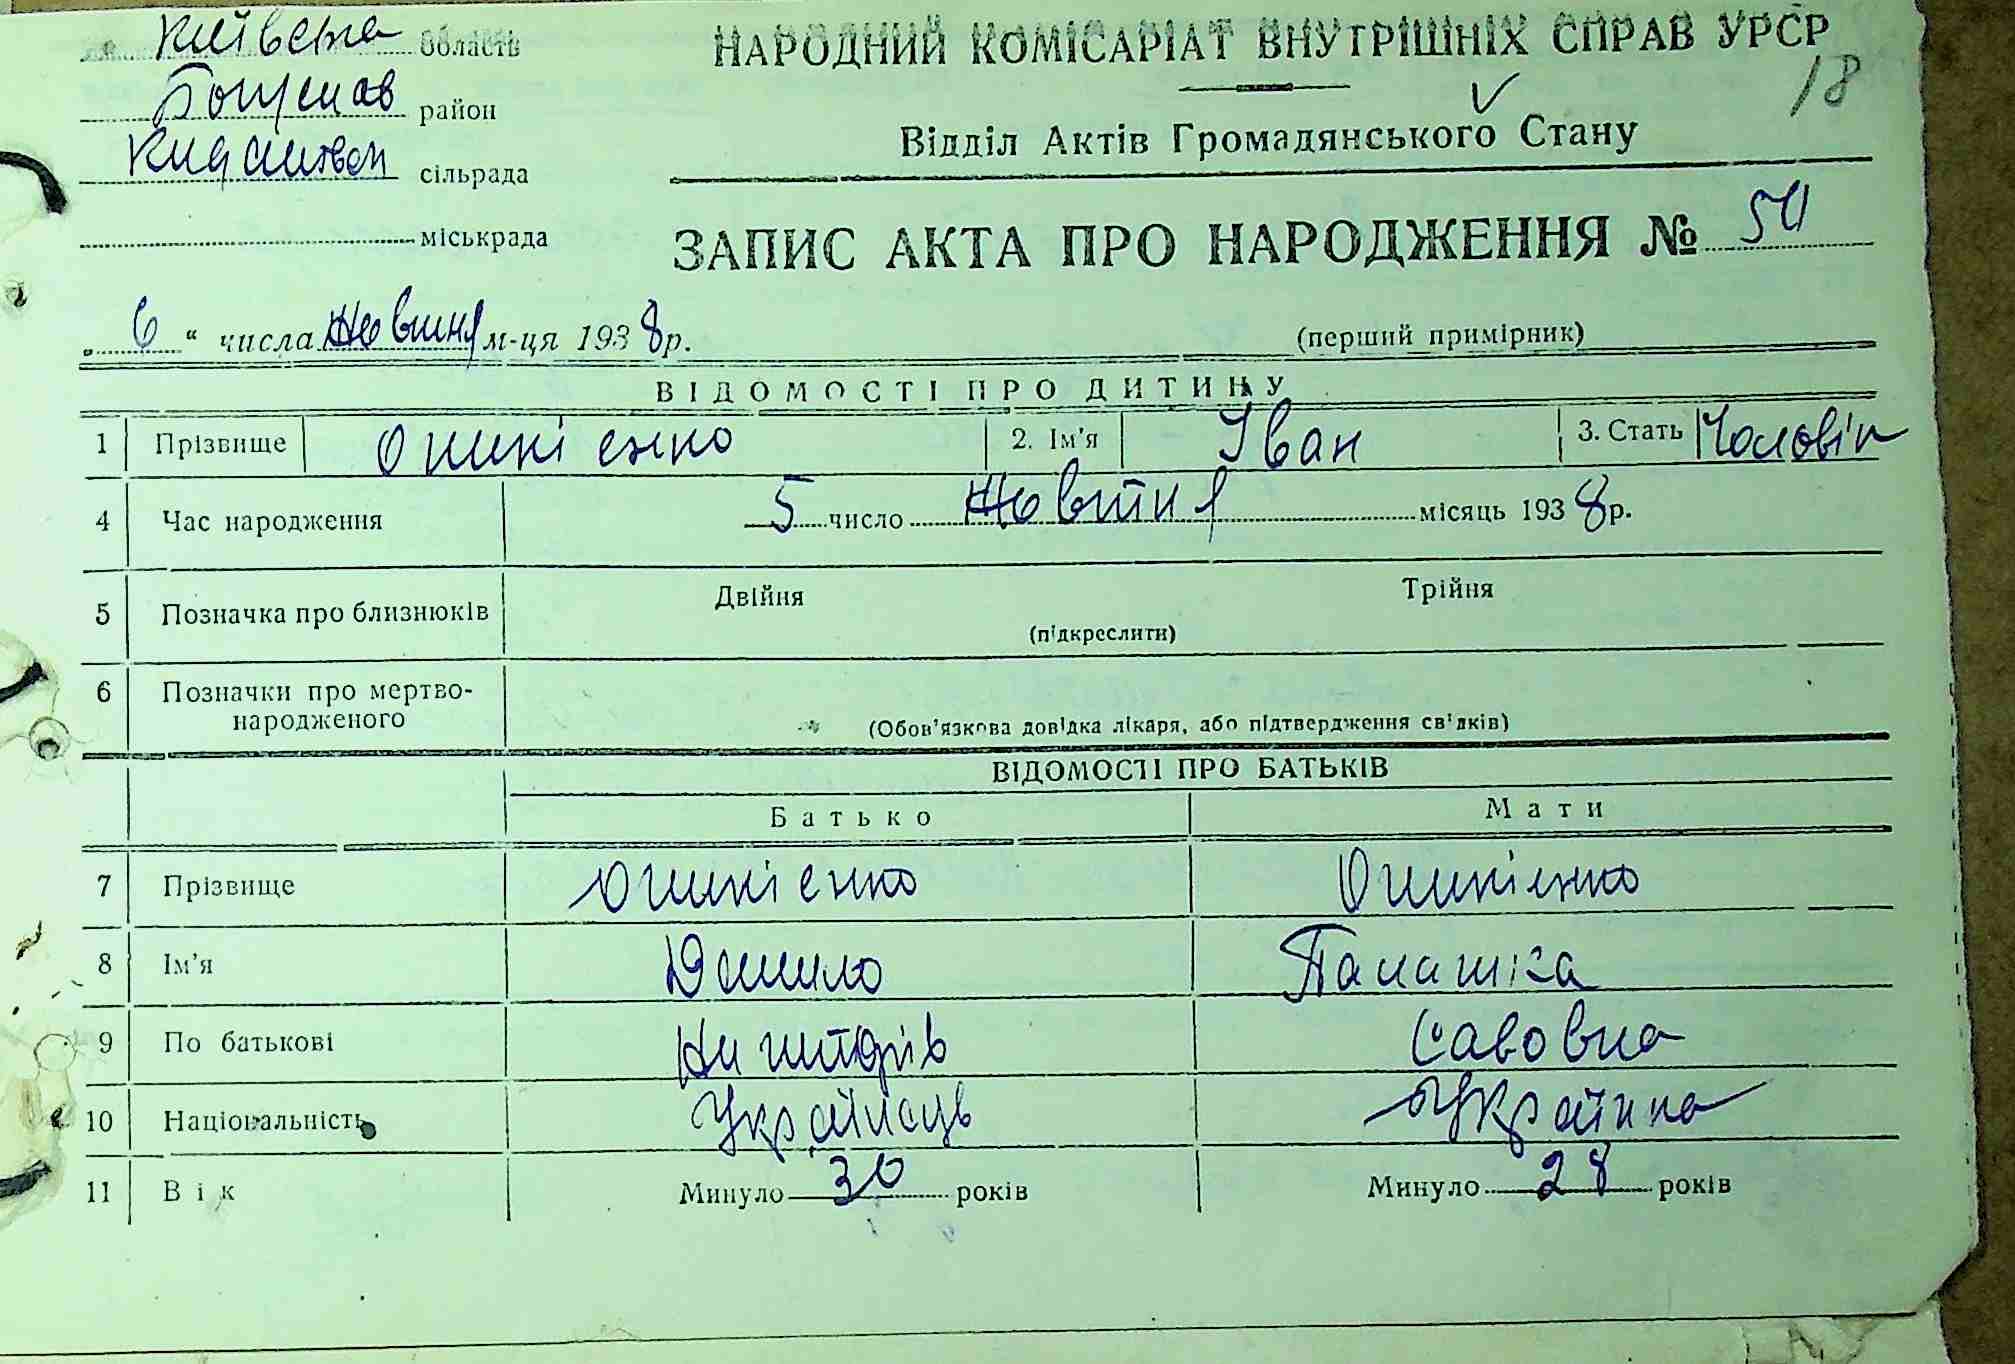 Київська область
район
сільрада
міськрада
НАРОДНИЙ КОМІСАРІАТ ВНУТРІШНІХ СПРАВ УРСР
18
Відділ Актів Громадянського Стану
ЗАПИС АКТА ПРО НАРОДЖЕННЯ №
„ 6 “ числа м-ця 1938 р.
(перший примірник)
ВІДОМОСТІ ПРО ДИТИНУ
1 Прізвище 2. Ім'я Іван 3. Стать Чоловік
4 Час народження 5 число Жовтня місяць 1938 р.
5 Позначка про близнюків Двійня Трійня
(підкреслити)
6 Позначки про мертво-
народженого
(Обов'язкова довідка лікаря, або підтвердження свідків)
ВІДОМОСТІ ПРО БАТЬКІВ
Батько Мати
7 Прізвище
8 Ім'я Данило
9 По батькові Савовна
10 Національність Українець Українка
11 Вік Минуло 30 років Минуло 28 років